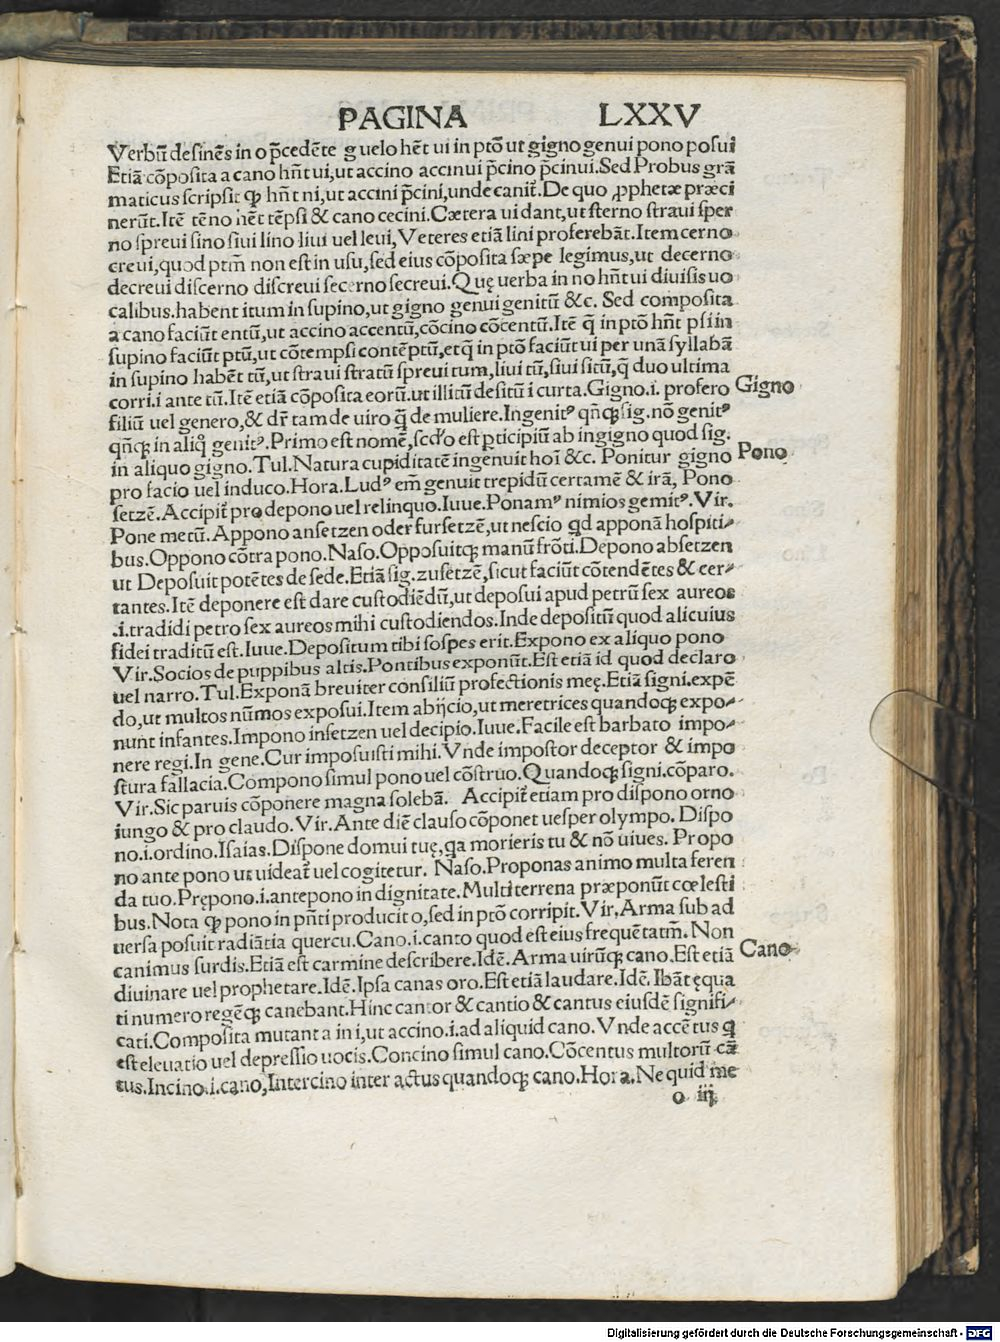 PAGINA LXXV
Verbū desinēs in o p̄cedēte g uel o hēt ui in ptō ut gigno genui pono posui
Etiā cōposita a cano hn̄t ui, ut accino accinui p̄cino p̄cinui. Sed Probus grā
maticus scripsit ꝙ hn̄t ni, ut accini p̄cini, unde canit̄. De quo ꝓphetæ præci
nerūt. Itē tēno hēt tēpsi & cano cecini. Cætera ui dant, ut sterno straui sper
no spreui sino siui lino liui uel leui, Veteres etiā lini proferebāt. Item cerno
creui, quod ptm̄ non est in usu, sed eius cōposita sæpe legimus, ut decerno
decreui discerno discreui secerno secreui. Quę uerba in no hn̄t ui diuisis uo
calibus. habent itum in supino, ut gigno genui genitū &c. Sed composita
a cano faciūt entū, ut accino accentū, cōcino cōcentū. Itē q̄ in ptō hn̄t psi in
supino faciūt ptū, ut cōtempsi contēptū, et q̄ in ptō faciūt ui per unā syllabā
in supino habēt tū, ut straui stratū spreui tum, liui tū, siui sitū, q̄ duo ultima
corri. i ante tū. Itē etiā cōposita eorū. ut illitū desitū i curta. Gigno. i. profero
Gigno
filiū uel genero, & dr̄ tam de uiro q̄ de muliere. Ingenitꝰ qn̄qꝫ sig. nō genitꝰ
qn̄qꝫ in aliq̊ genitꝰ. Primo est nomē, scd̄o est ꝑticipiū ab ingigno quod sig.
in aliquo gigno. Tul. Natura cupiditatē ingenuit hoī &c. Ponitur gigno
Pono
pro facio uel induco. Hora. Ludꝰ em̄ genuit trepidū certamē & irā, Pono
setzē. Accipit̄ pro depono uel relinquo. Iuue. Ponamꝰ nimios gemitꝰ. Vir.
Pone metū. Appono ansetzen oder fursetzē, ut nescio qd apponā hospiti⸗
bus. Oppono cōtra pono. Naso. Opposuitqꝫ manū frōti. Depono absetzen
ut Deposuit potētes de sede. Etiā sig. zusetzē, sicut faciūt cōtendētes & cer⸗
tantes. Itē deponere est dare custodiēdū, ut deposui apud petrū sex aureos
.i. tradidi petro sex aureos mihi custodiendos. Inde depositū quod alicuius
fidei traditū est. Iuue. Depositum tibi sospes erit. Expono ex aliquo pono
Vir. Socios de puppibus altis. Pontibus exponūt. Est etiā id quod declaro
uel narro. Tul. Exponā breuiter consiliū profectionis meę. Etiā signi. expē
do, ut multos nūmos exposui. Item abijcio, ut meretrices quandoqꝫ expo⸗
nunt infantes. Impono insetzen uel decipio. Iuue. Facile est barbato impo⸗
nere regi. In gene. Cur imposuisti mihi. Vnde impostor deceptor & impo
stura fallacia. Compono simul pono uel cōstruo. Quandoqꝫ signi. cōparo.
Vir. Sic paruis cōponere magna solebā. Accipit̄ etiam pro dispono orno
iungo & pro claudo. Vir. Ante diē clauso cōponet uesper olympo. Dispo
no. i. ordino. Isaias. Dispone domui tuę, qa morieris tu & nō uiues. Propo
no ante pono ut uideat̄ uel cogitetur. Naso. Proponas animo multa feren
da tuo. Prępono. i. antepono in dignitate. Multi terrena præponūt cœlesti
bus. Nota ꝙ pono in pn̄ti producit o, sed in ptō corripit. Vir. Arma sub ad
uersa posuit radiātia quercu. Cano. i. canto quod est eius frequētatm̄. Non
Cano
canimus surdis. Etiā est carmine describere. Idē. Arma uirūqꝫ cano. Est etiā
diuinare uel prophetare. Idē. Ipsa canas oro. Est etiā laudare. Idē. Ibāt ęqua
ti numero regēqꝫ canebant. Hinc cantor & cantio & cantus eiusdē signifi⸗
cati. Composita mutant a in i, ut accino. i. ad aliquid cano. Vnde accētus q̄
est eleuatio uel depressio uocis. Concino simul cano. Cōcentus multorū cā
tus. Incino. i. cano, Intercino inter actus quandoqꝫ cano. Hora. Ne quid me
o iij
Digitalisierung gefördert durch die Deutsche Forschungsgemeinschaft - DFG